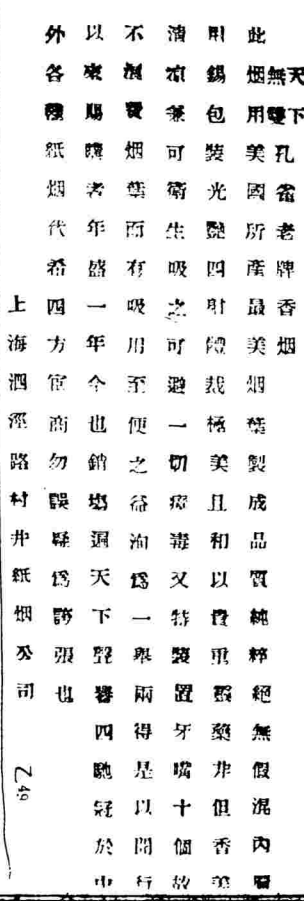 天下無雙孔雀老牌香烟
此烟用美國所產最美烟葉製成品質純粹絕無假混內層
用錫包裝光艷四射體裁極美且和以貴重藥非但香美
清涼兼可衛生吸之可避一切疫毒又特裝置牙嘴十個故
不費烟葉而有吸用至便之益洵爲一舉兩得是以開行
以來賜購者年盛一年今也銷塲遍天下聲譽四馳冠於中
外各種紙烟代希四方官商勿誤疑爲誇張也
上海泗涇路村井紙烟公司
Z49